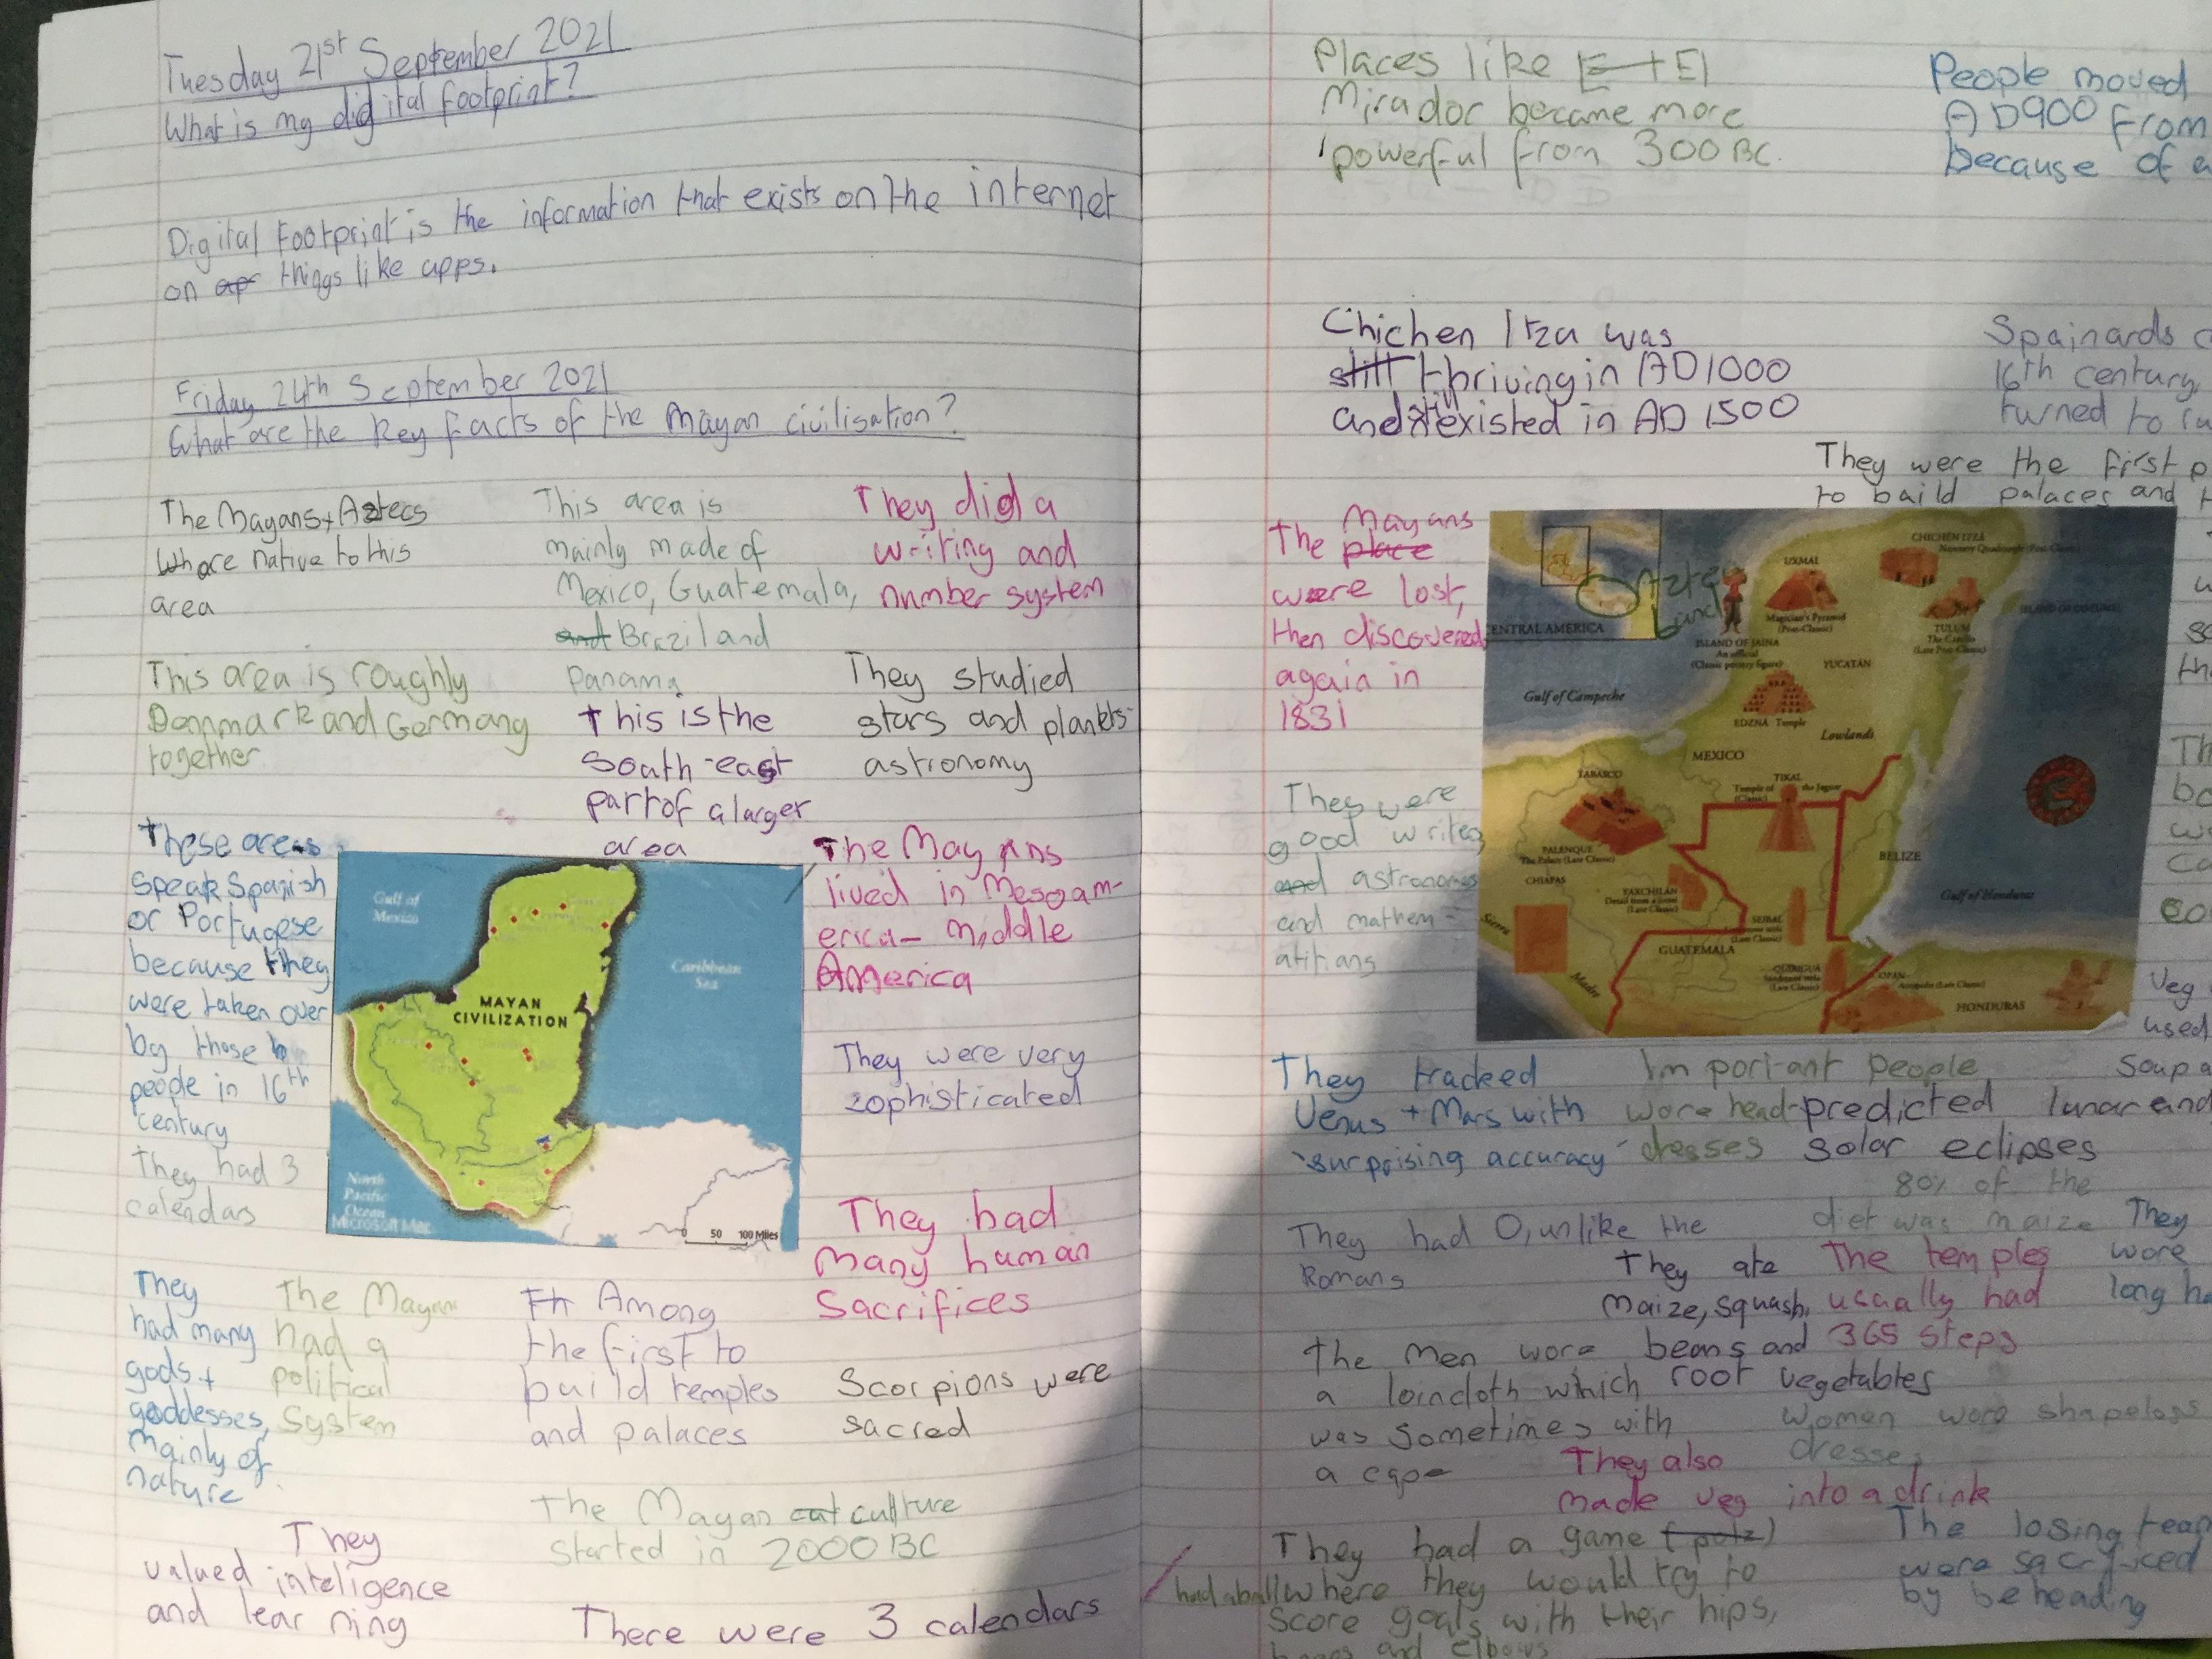 Tuesday 21st September 2021
What is my digital footprint?
Digital Footprint is the information that exists on the internet
on ap things like apps.
Friday 24th September 2021
What are the key facts of the Mayan civilisation?
The Mayans + Aztecs
Whore native to this
area
This area is
mainly made of
Mexico, Guatemala,
and Brazil and
Panama
They did a
writing and
number system
This area is roughly
Denmark and Germany
together
This is the
South-east
part of a larger
area
They studied
stars and planets-
astronomy
These areas
speak Spanish
or Portugese
because they
were taken over
by those b
people in 16th
century
They had 3
calendars
Gulf of
Mexico
Caribbean
Sea
MAYAN
CIVILIZATION
North
Pacific
Ocean
50 100 Miles
The Mayans
lived in Mesoam-
erica- Middle
America
They were very
sophisticated
They had
many human
Sacrifices
They
had many
gods +
goddesses,
mainly of
nature
The Mayans
had a
political
system
Th Among
the first to
build temples
and palaces
Scorpions were
sacred
They
valued inteligence
and learning
The Mayan cut culture
started in 2000 BC
There were 3 calendars
Places like El
Mirador became more
powerful from 300 BC.
People moved
AD900 from
because of
Chichen Itza was
still thriving in AD 1000
and still existed in AD 1500
Spainards
16th century,
turned to
They were the first
to baild palaces and
The place Mayans
were lost,
then discovered
again in
1831
They were
good writes
and astronomes
and mathem-
atitians
CENTRAL AMERICA
Aztec
ISLAND OF JAINA
An official
(Classic pottery figure)
UXMAL
Magician's Pyramid
(Post-Classic)
CHICHEN ITZA
TULUM
The Castillo
(Late Post-Classic)
YUCATÁN
Gulf of Campeche
EDZNA Temple
Lowlands
MEXICO
TABASCO
TIKAL
Temple of the Jaguar
(Classic)
PALENQUE
The Palace (Late Classic)
BELIZE
CHIAPAS
YAXCHILAN
(Late Classic)
Gulf of Honduras
Sierra
Madre
SEIBAL
(Late Classic)
GUATEMALA
QUIRIGUA
(Late Classic)
COPAN
HONDURAS
Veg
used,
soup
They tracked
Venus + Mars with
surprising accuracy
Important People
wore head-
dresses
predicted lunar and
solar eclipses
They had 0, unlike the
Romans
80% of the
diet was maize
They ate
maize, squash,
beans and
root vegetables
The temples
usually had
365 steps
They
wore
long
The men wore
a loincloth which
was sometimes with
a cape
Women wore shapeless
dresses
They also
made veg into a drink
They had a game
had a ball where they would try to
score goals with their hips,
and elbows
The losing team
were sacrificed
by beheading